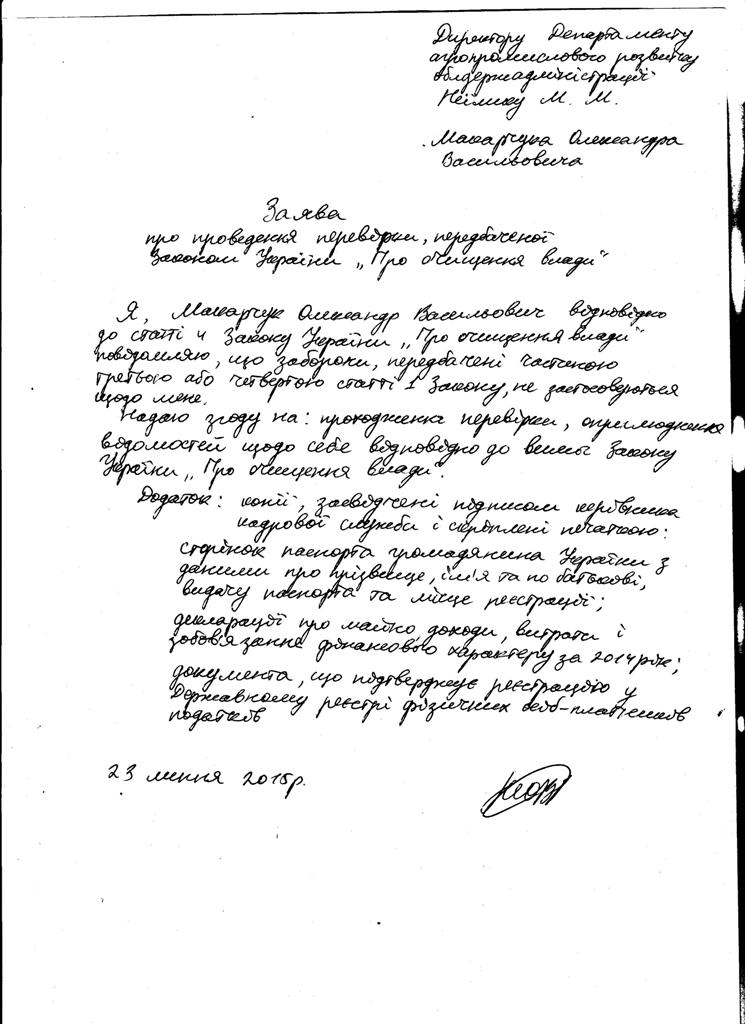 Директору Департаменту
агропромислового розвитку
облдержадміністрації
М. М.
Макарчука Олександра
Васильовича
Заява
про проведення перевірки, передбаченої
Законом України „Про очищення влади"
Я, Макарчук Олександр Васильович відповідно
до статті 4 Закону України „Про очищення влади"
повідомляю, що заборони, передбачені частиною
третьою або четвертою статті 1 Закону, не застосовуються
щодо мене.
Надаю згоду на: проходження перевірки, оприлюднення
відомостей щодо себе відповідно до вимог Закону
України „Про очищення влади".
Додаток: копії, засвідчені підписом керівника
кадрової служби і скріплені печаткою:
сторінок паспорта громадянина України з
даними про прізвище, ім'я та по батькові,
видачу паспорта та місце реєстрації;
декларації про майно, доходи, витрати і
зобов'язання фінансового характеру за 2014 рік;
документа, що підтверджує реєстрацію у
Державному реєстрі фізичних осіб-платників
податків
23 липня 2015р.